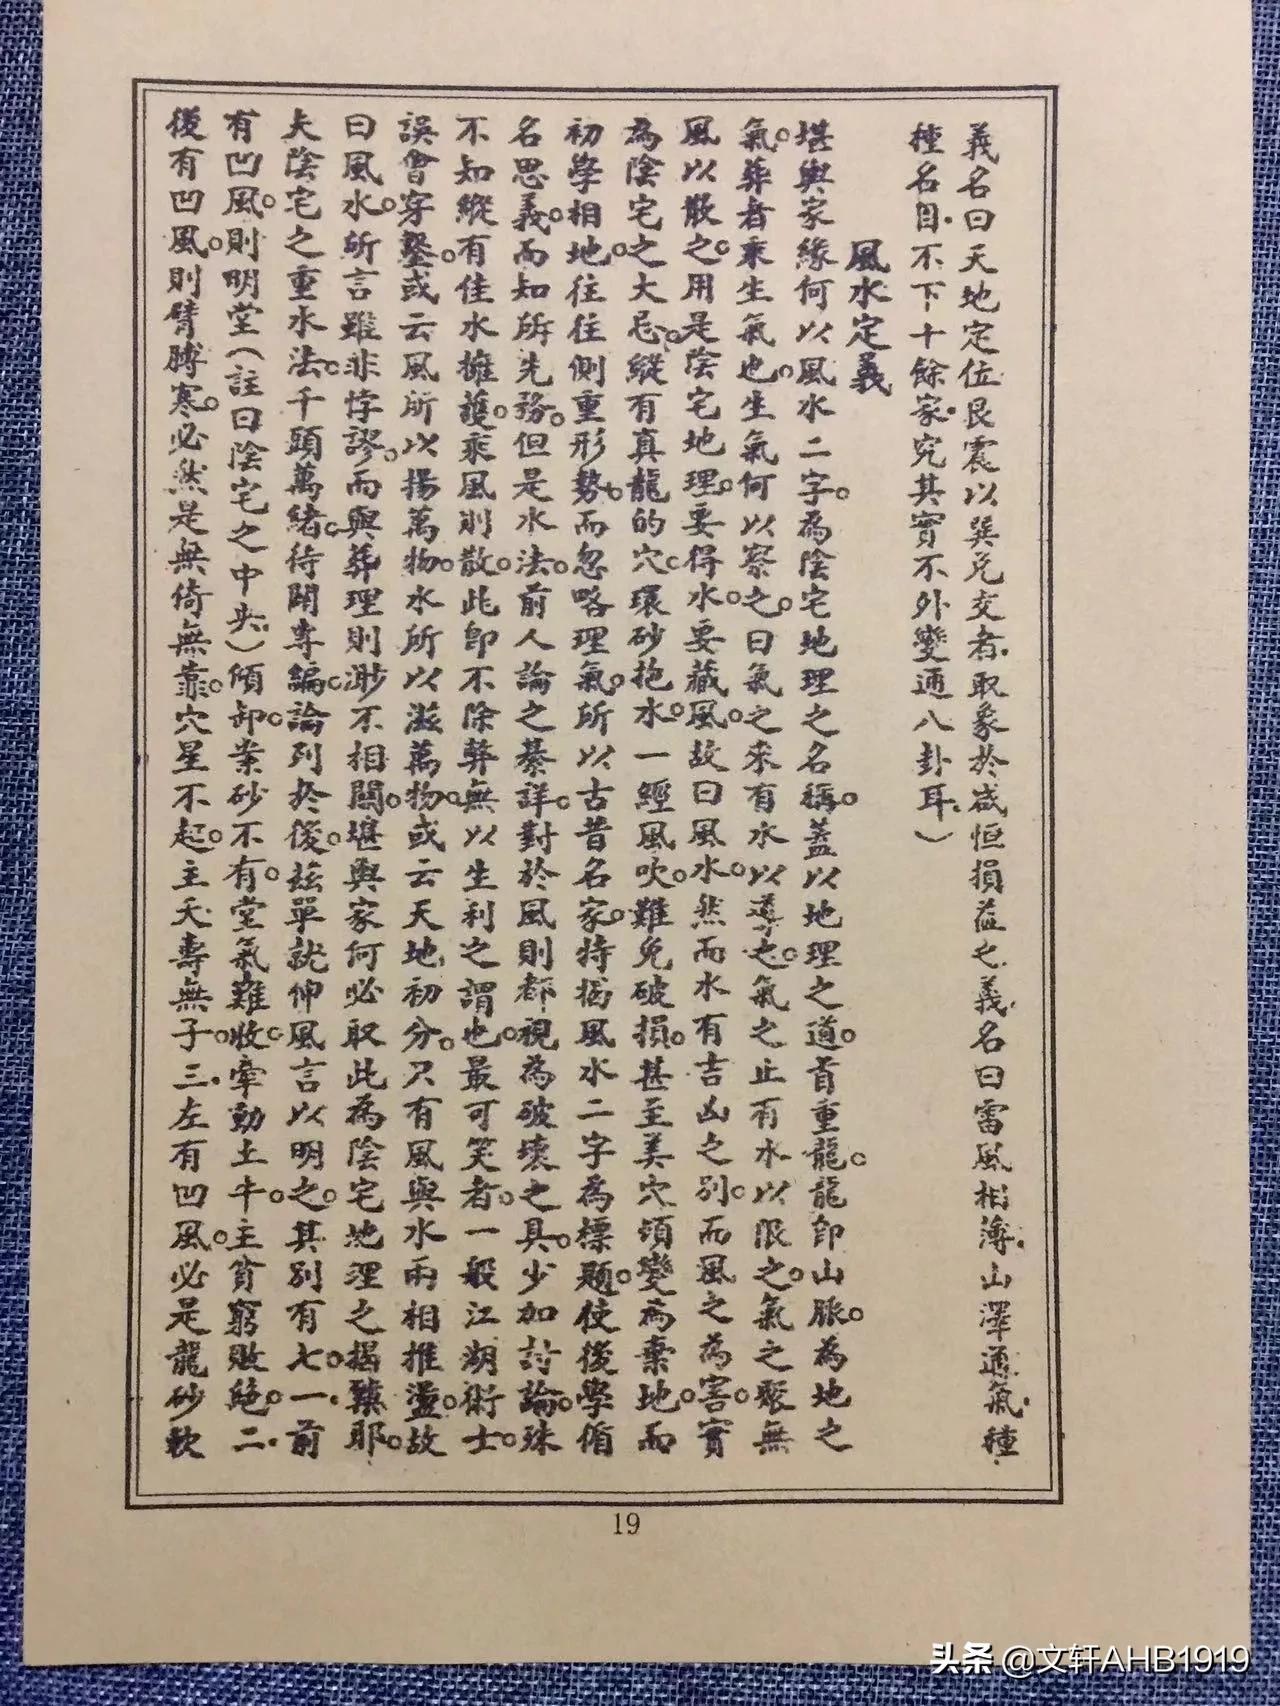 義名曰天地定位艮震以巽兌交者.取象於咸恒損益之義.名曰雷風相薄.山澤通氣.種
種名目.不下十餘家.究其實不外變通八卦耳.）
風水定義
堪輿家緣何以風水二字。為陰宅地理之名稱。蓋以地理之道。首重龍。龍即山脈。為地之
氣。葬者乘生氣也。生氣何以察之。曰氣之來有水以導之。氣之止有水以限之。氣之聚無
風以散之。用是陰宅地理。要得水。要藏風。故曰風水。然而水有吉凶之別。而風之為害。實
為陰宅之大忌。縱有真龍的穴。環砂抱水。一經風吹。難免破損。甚至美穴頃變為棄地。而
初學相地往往側重形勢。而忽略理氣。所以古昔名家。特揭風水二字為標題。使後學循
名思義。而知所先務。但是水法。前人論之綦詳。對於風則都視為破壞之具。少加討論。殊
不知縱有佳水擁護。乘風則散。此即不除弊無以生利之謂也。最可笑者。一般江湖術士。
誤會穿鑿。或云風所以揚萬物。水所以滋萬物。或云天地初分。只有風與水兩相推盪。故
曰風水。所言雖非悖謬。而與葬理則渺不相關。堪輿家何必取此為陰宅地理之揭櫫耶。
夫陰宅之重水法。千頭萬緒。待闢專編。論列於後。茲單就伸風言以明之。其別有七。一.前
有凹風。則明堂（註曰陰宅之中央.）傾卸。案砂不有。堂氣難收。牽動土牛。主貧窮敗絕。二.
後有凹風。則臂膊寒。必然是無倚無靠。穴星不起。主夭壽無子。三.左有凹風。必是龍砂軟
19
头条 @文轩AHB1919